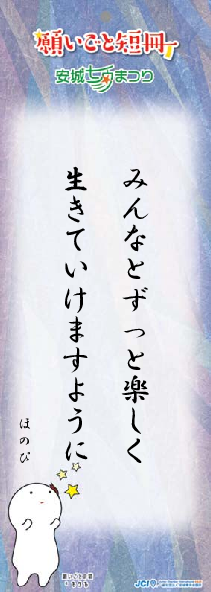 願いごと短冊
安城七夕まつり
みんなとずっと楽しく
生きていけますように
ほのぴ
願いごと短冊
JCI